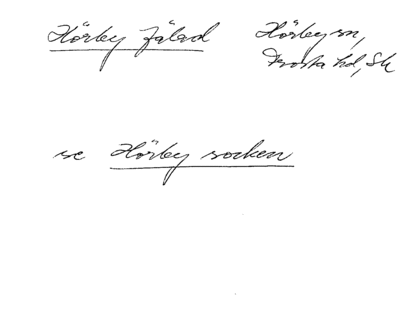 Hörby fälad
Hörby sn,
Frosta hd, Sk
se Hörby socken